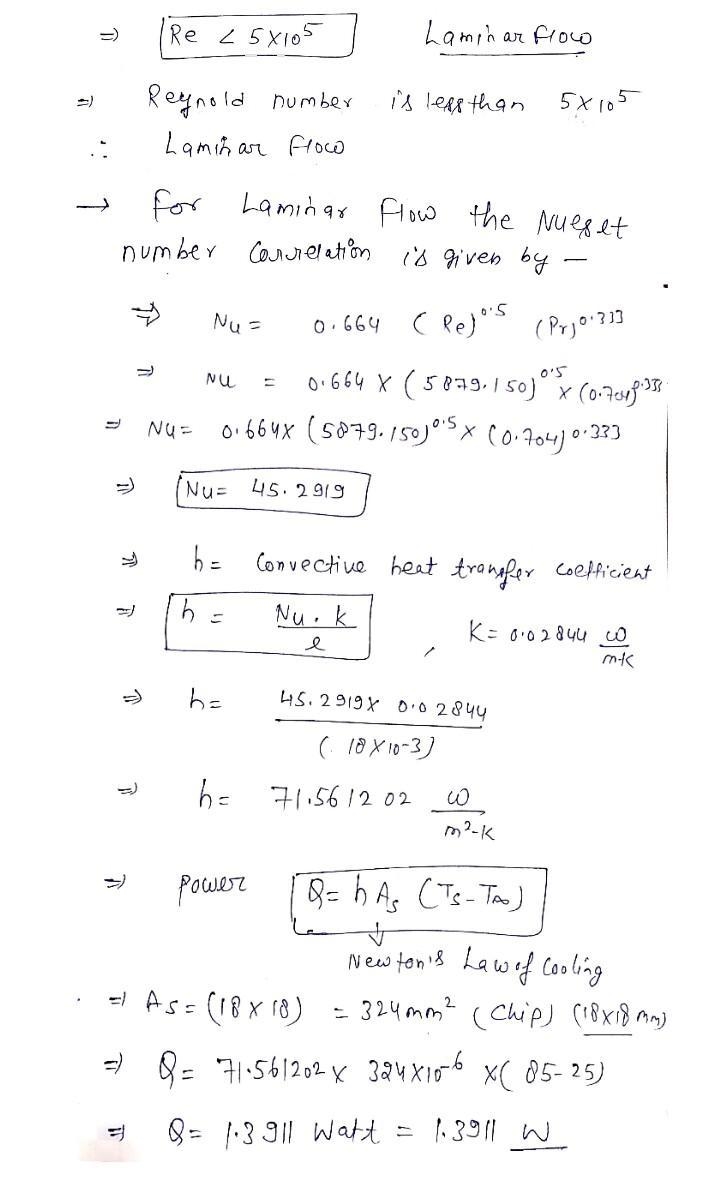 ⇒ Re < 5×10⁵ Laminar flow
⇒ Reynold number is less than 5×10⁵
∴ Laminar flow
→ for Laminar Flow the Nueset
number Correlation is given by —
⇒ Nu = 0.664 (Re)^0.5 (Pr)^0.333
⇒ Nu = 0.664 × (5879.150)^0.5 × (0.704)^0.333
⇒ Nu = 0.664× (5879.150)^0.5 × (0.704)^0.333
⇒ Nu = 45.2919
⇒ h = Convective heat transfer coefficient
⇒ h = Nu . k / l , K = 0.02844 w / m-k
⇒ h = 45.2919 × 0.02844 / (18×10-3)
⇒ h = 71.561202 w / m²-k
⇒ power Q = h As (Ts - T∞)
Newton's Law of Cooling
⇒ As = (18 × 18) = 324 mm² (Chip) (18×18 mm)
⇒ Q = 71.561202 × 324×10⁻⁶ ×( 85-25)
⇒ Q = 1.3911 Watt = 1.3911 W